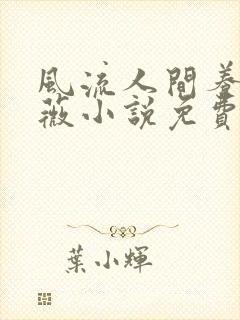 風流人間養
薇小說免費
葉小輝